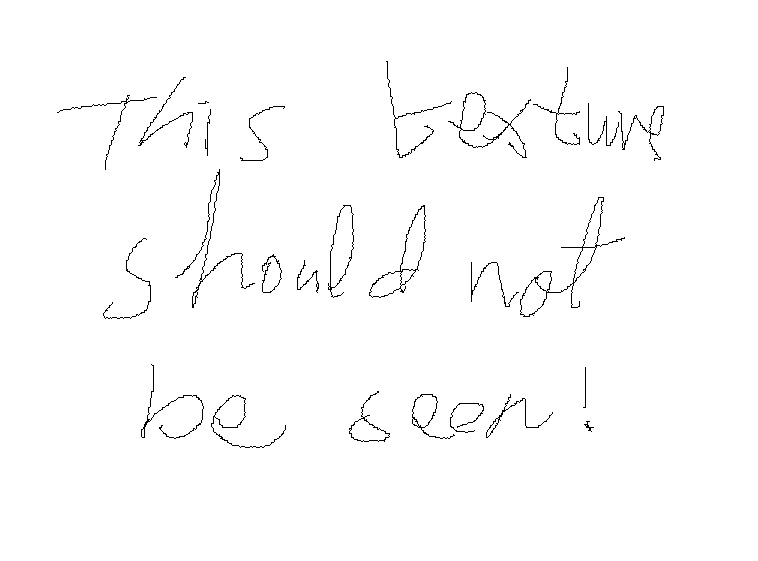 This texture
should not
be seen!